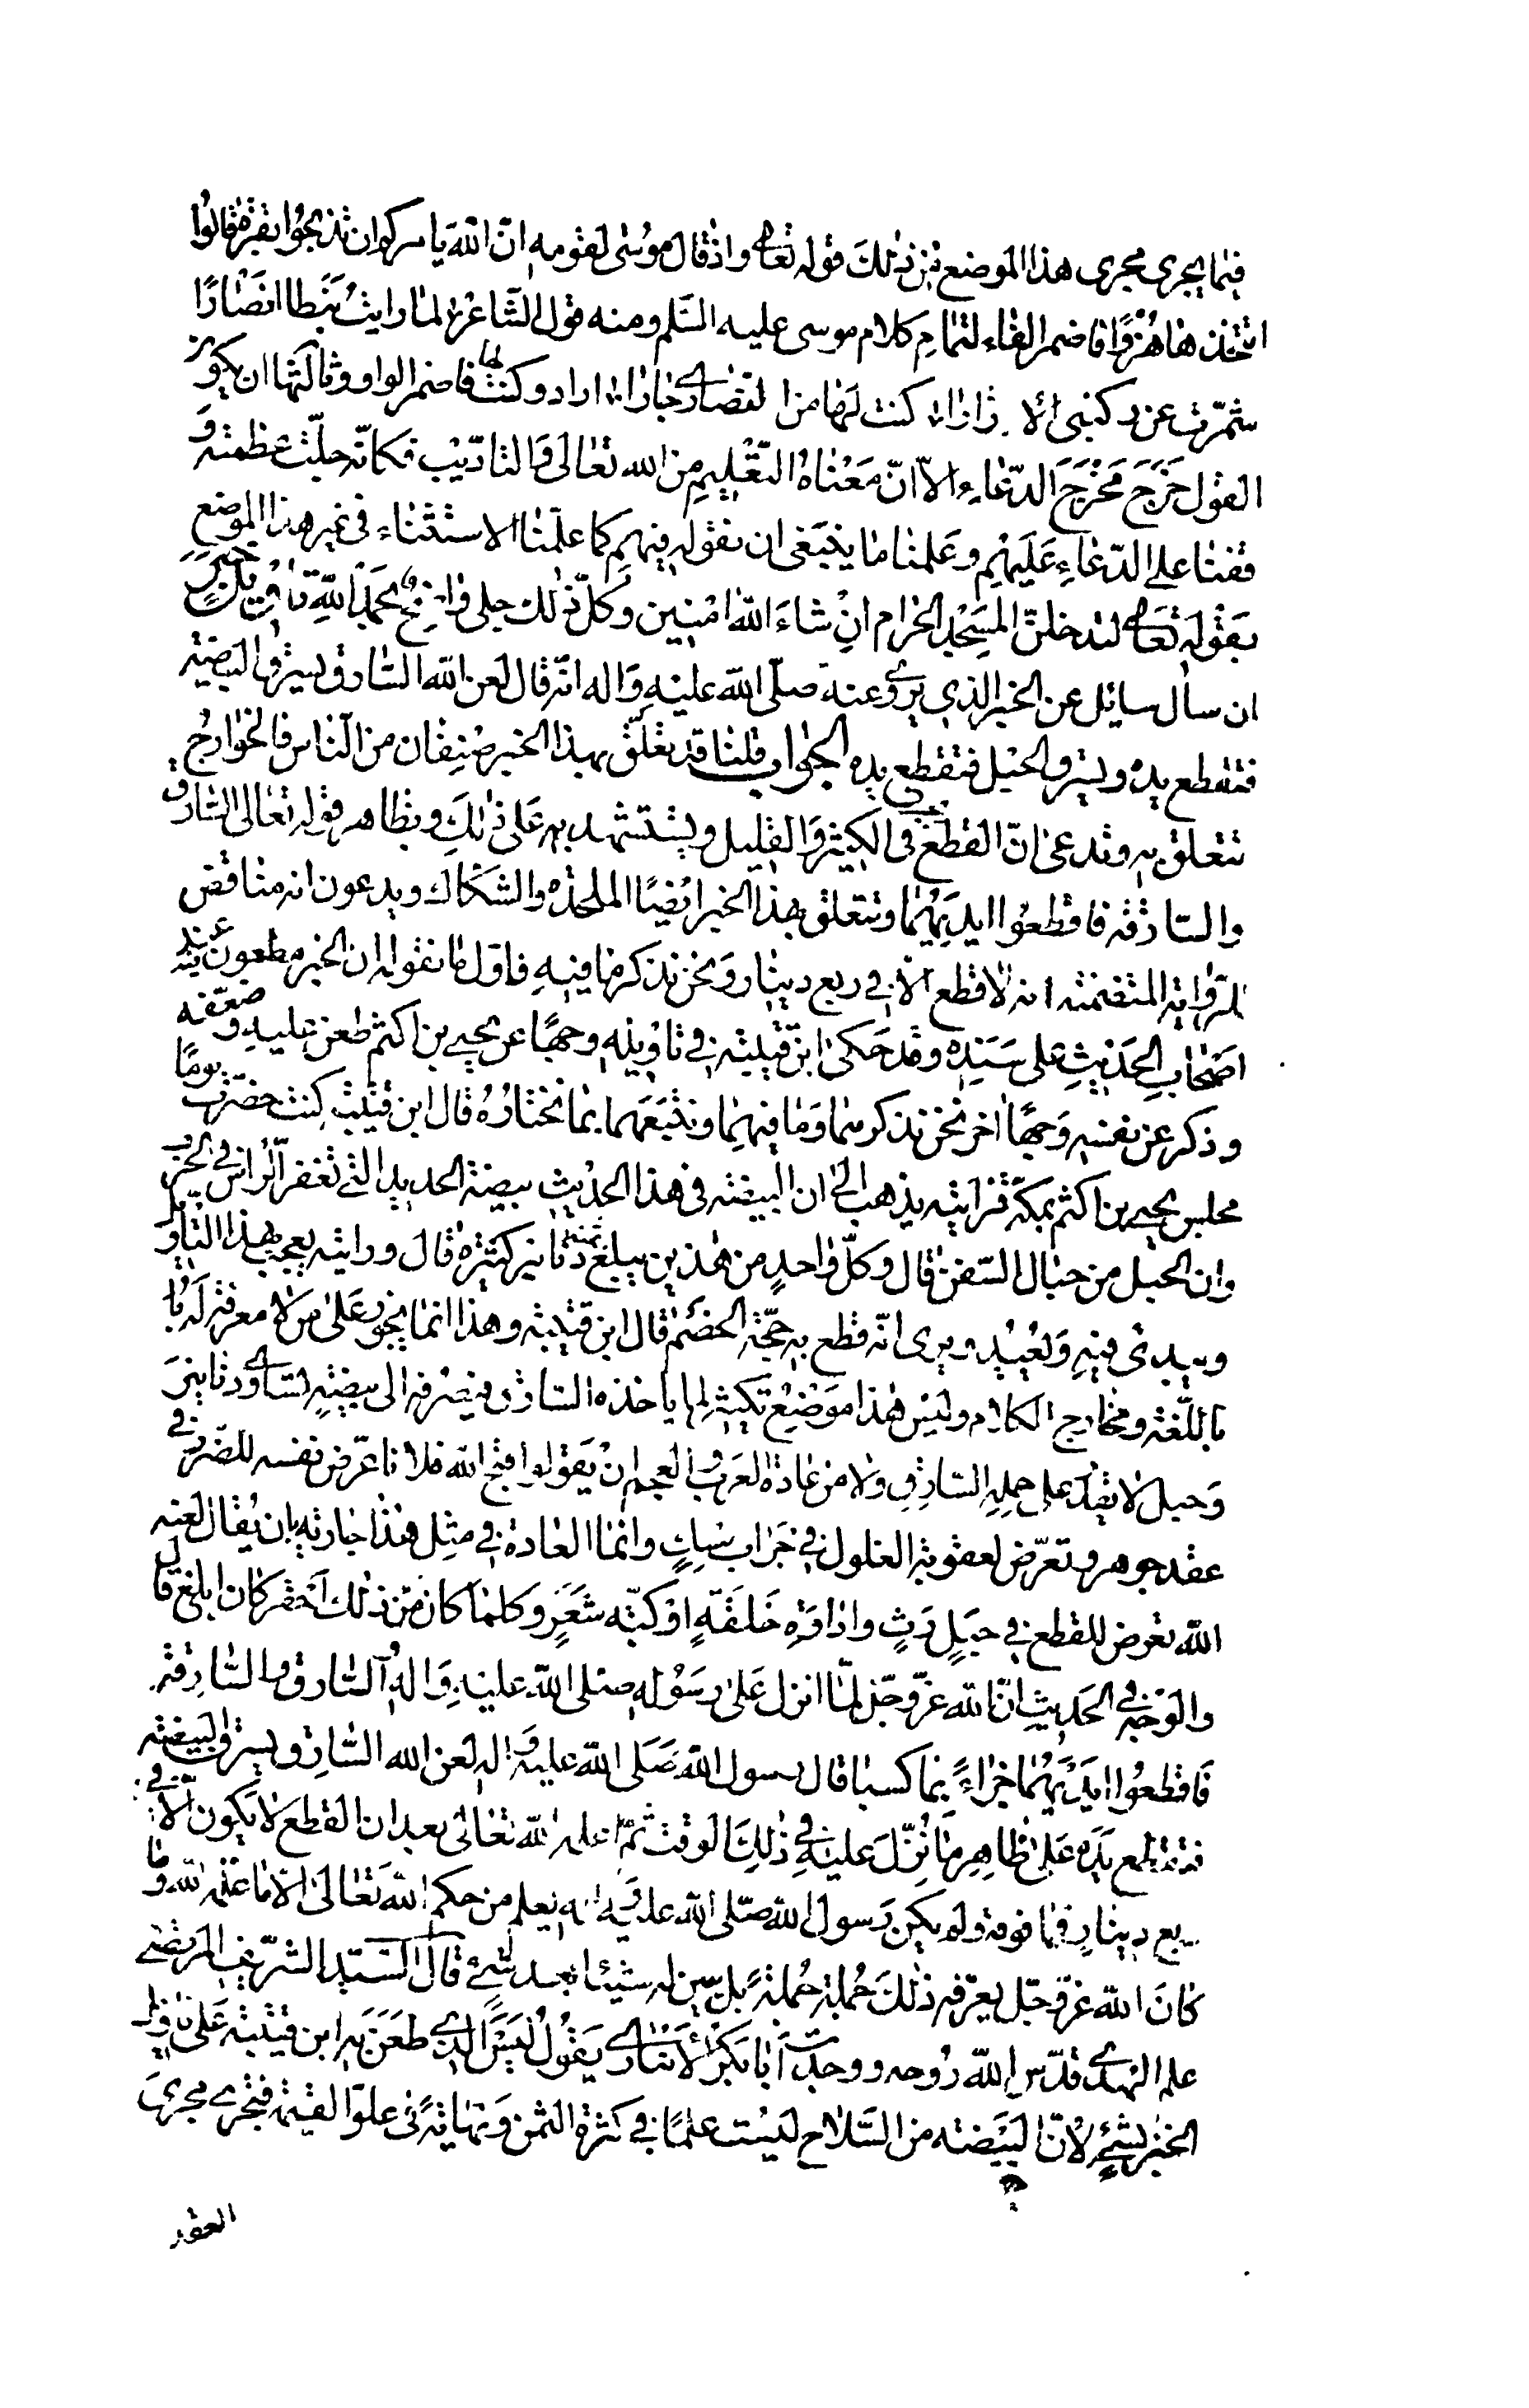 فيما يجرى مجرى هذا الموضع فمن ذلك قوله تعالى واذ قال موسى لقومه ان الله يامركم ان تذبحوا بقرة قالوا
اتتخذنا هزوا فاضمر الفاء لتمام كلام موسى عليه السلم ومنه قول الشاعر لما رايت نبطا انصارا
شمرت عن ركبتى الازارا كنت لها من النصارى جارا اراد وكنت لها فاضمر الواو وثالثها ان يكون
القول خَرَجَ مَخْرَجَ الدّعاءِ الاّ انّ مَعْناهُ التّعْليم من الله تعالى والتاديب فكانّه جلّت عظمته و
قفنا على الدّعاءِ عَلَيهم وعلمنا ما ينبغى ان نقوله فيهم كما علّمنا الاستثناء فى غير هذا الموضع
بقوله تعالى لتدخلنّ المسجد الحرام ان شاءَ الله امنين وكلّ ذلك جلى واضح بحمد الله تاويل خبر
ان سأل سايل عن الخبر الذي يروى عنه صلّى الله عليه واله انّه قال لعن الله السّارق يسرق البيضة
فتقطع يده ويسرق الحبل فتقطع يده الجواب قلنا قد تعلّق بهذا الخبر صنفان من النّاس فالخوارج
تتعلق به وتدعى انّ القطع فى الكثير والقليل ويستشهد به على ذلك وبظاهر قوله تعالى السّارق
والسّارقة فاقطعوا ايديهما وتتعلق بهذا الخبر ايضًا الملحدة والشكاك ويدعون انه مناقض
للرّواية المتضمنة انه لا قطع الاّ في ربع دينار ونحن نذكر ما فيه فاوّل ما نقوله ان الخبر مطعون عند
اصحاب الحديث على سنده وقد حكى ابن قتيبة في تاويله وجهًا عن يحيى بن اكثم طعن عليه وضعّفه
وذكر عن نفسه وجهًا اخر نحن نذكرهما وما فيهما ونتبعهما بما نختاره قال ابن قتيبة كنت حضرت يومًا
مجلس يحيى بن اكثم بمكّة فرايته يذهب الى ان البيضة فى هذا الحديث بيضة الحديد التى تغفر الرّاس في الحرب
وان الحبل من حبال السّفن قال وكلّ واحدٍ من هذين يبلغ ثمنه دنانير كثيرة قال ورايته يعجب بهذا التّاويل
ويبدئ فيه ويُعيد ويرى انّه قطع به حجّة الخصم قال ابن قتيبة وهذا انّما يجوز على من لا معرفة له
باللّغة ومخارج الكلام وليس هذا موضع تكثير لما ياخذه السارق فيصرفه الى بيضةٍ تساوى دنانير
وحبل لا يقدر على حمله السّارق ولا من عادة العرب والعجم ان يقولوا قبح الله فلانا عرّض نفسه للضّرب في
عقد جوهر وتعرّض لعقوبة الغلول في جراب مسك وانما العادة في مثل هذا جارية بان يُقال لعنه
الله تعرض للقطع في حبل رثٍ واداوة خلقةٍ او كبّة شعرٍ وكلما كان من ذلك احقر كان ابلغ قال
والوجه في الحديث انّ الله عزّ وجلّ لمّا انزل على رسوله صلى الله عليه واله السّارق والسّارقة
فاقطعوا ايديهما جزاءً بما كسبا قال رسول الله صلى الله عليه واله لعن الله السّارق يسرق البيضة
فتقطع يده على ظاهر ما نُزّل عليه في ذلك الوقت ثمّ اعلمه الله تعالى بعد ان القطع لا يكون الاّ في
ربع دينارٍ فما فوقه ولم يكن رسول الله صلّى الله عليه واله يعلم من حكم الله تعالى الاّ ما علّمه الله وما
كانَ الله عزّ وجلّ يعرّفه ذلك جُملة جُملةً بل يبين له شيئا بعد شئ قال السّيّد الشّريف المرتضى
علم الهدى قدّس الله روحه ووجدت ابا بكر الانبارى يقول ليس الذي طعن به ابن قتيبة على تاويل
الخبر بشئ لانّ البيضة من السّلاح ليست علمًا في كثرة الثمن ونهايةً في علوّ القيمة فتجرى مجرى
العقد